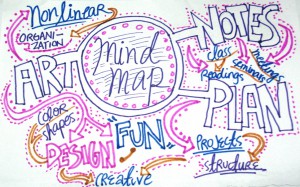 Nonlinear
ORGANI-
ZATION
mind
map
NOTES
class
meetings
seminars
Readings
ART
color
shapes
DESIGN
"FUN"
creative
PLAN
PROJECTS
structure